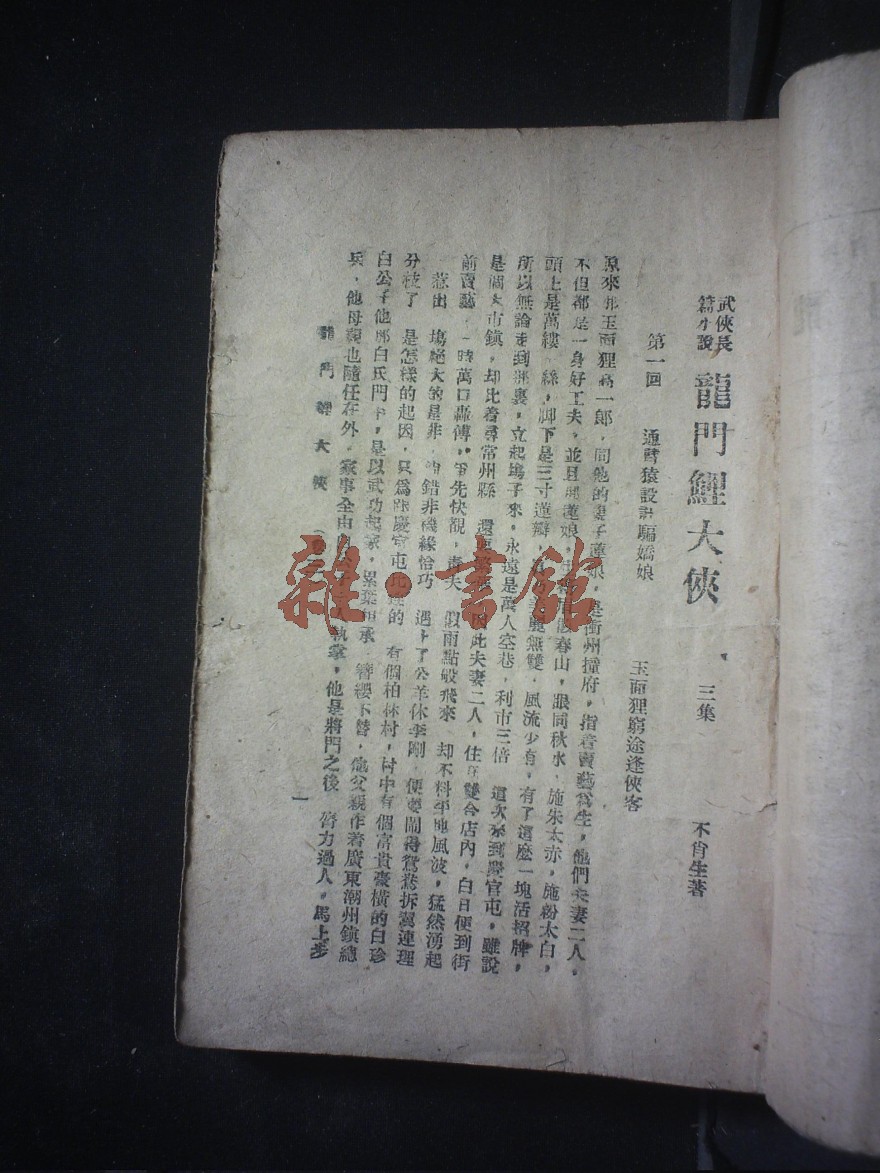 武俠長篇小說 龍門鯉大俠 三集 不肖生著
第一回 通臂猿設計騙嬌娘 玉面狸窮途逢俠客
原來那玉面狸高一郎，同他的妻子蓮娘，是衝州撞府，指着賣藝為生，他們夫妻二人，
不但都是一身好工夫，並且蓮娘，春山，眼同秋水，施朱太赤，施粉太白，
頭上是萬縷絲，脚下是三寸蓮瓣，無雙，風流少有，有了這麽一塊活招牌，
所以無論走到那裏，立起塲子來，永遠是萬人空巷，利市三倍 這次來到慶官屯，雖說
是個大市鎮，却比着尋常州縣 還 因此夫妻二人，住在雙合店內，白日便到街
前賣藝 一時萬口轟傳，爭先快覩， 似雨點般飛來 却不料平地風波，猛然湧起
惹出 塲絕大的是非 錯非機緣恰巧 遇上了公羊休李剛，便要鬧得鴛鴦拆翼連理
分枝了 是怎樣的起因，只為距慶官屯北連的 有個柏林村，村中有個富貴豪橫的白珍
白公子他那白氏門中，是以武功起家，累葉相承 簪纓不替，他父親作着廣東潮州鎮總
兵，他母親也隨任在外 家事全由 執掌，他是將門之後 膂力過人，馬上步
龍門鯉大俠
一
雜·書館